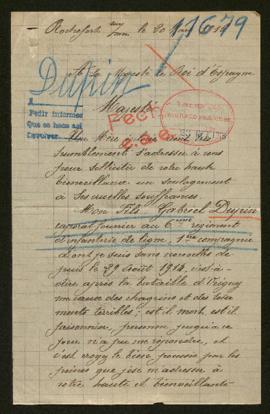 Rochefort sur mer le 20 19
11679
A Sa Majesté le Roi d'Espagne
Dupin
Majesté
A
Pedir informes
Que se hace así
Devolver.
Une Mère vient
humblement s'adresser à vous
pour solliciter de votre haute
bienveillance un soulagement
à ses cruelles souffrances.
Mon Fils Gabriel Dupin
caporal fourrier au 6ème régiment
d'infanterie de ligne, 1ère compagnie
dont je suis sans nouvelles de
puis le 29 août 1914, c'est-à-
dire après la bataille d'
me cause des chagrins et des tour
ments terribles; est-il mort, est-il
prisonnier, personne jusqu'à ce
jour n'a pu me répondre, et
c'est croyez le bien poussée par les
peines que j'ose m'adresser à
votre haute et bienveillante